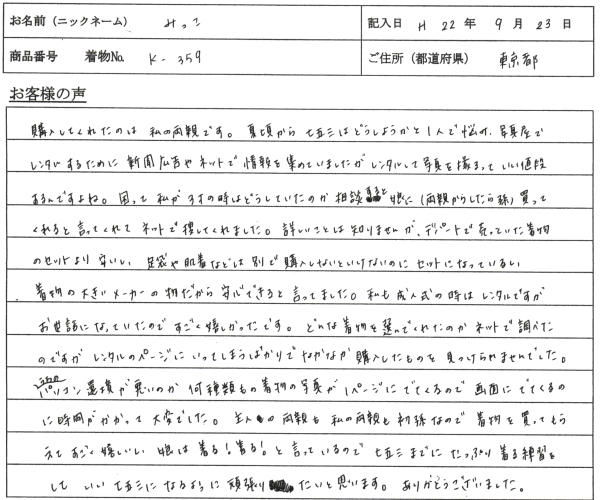 お名前(ニックネーム) みっこ 記入日 H 22年 9月 23日
商品番号 着物No. K-359 ご住所(都道府県) 東京都
お客様の声
購入してくれたのは 私の両親です。夏頃から 七五三はどうしようかと1人で悩み、写真屋で
レンタルするために 新聞広告やネットで 情報を集めていましたが レンタルして写真を撮るって いい値段
するんですよね。困って 私が3才の時はどうしていたのか 相談すると 娘に(両親からしたら孫)買って
くれると言ってくれて ネットで探してくれました。詳しいことは知りませんが、デパートで売っていた着物
のセットより 安いし 足袋や肌着などは別で購入しないといけないのに セットになっているし
着物の大きいメーカーの物だから安心できると言ってました。私も成人式の時はレンタルですが
お世話になっていたので すごく嬉しかったです。どんな着物を選んでくれたのか ネットで調べた
のですが レンタルのページにいってしまうばかりで なかなか購入したものを見つけられませんでした。
パソコン環境が悪いのか 何種類もの着物の写真が1ページにでてくるので 画面にでてくるの
に時間がかかって 大変でした。主人の両親も 私の両親も 初孫なので 着物を買ってもら
えて すごく嬉しいし 娘は着る!着る!と言っているので 七五三までに たっぷり着る練習を
して いい七五三になるように 頑張りたいと思います。ありがとうございました。